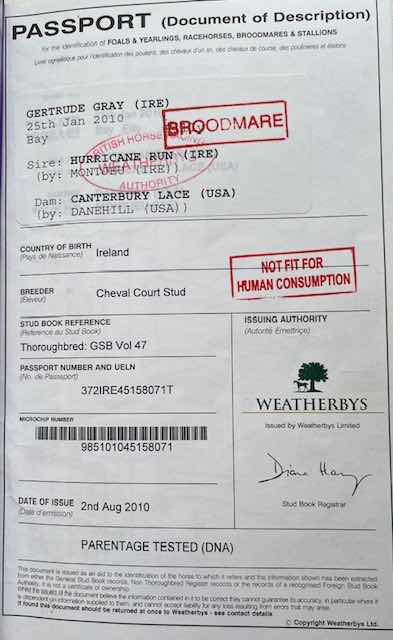 PASSPORT (Document of Description)
for the identification of FOALS & YEARLINGS, RACEHORSES, BROODMARES & STALLIONS
Livre signalétique pour l'identification des poulains, des chevaux d'un an, des chevaux de course, des poulinières et étalons
GERTRUDE GRAY (IRE)
25th Jan 2010
Bay
BROODMARE
Sire: HURRICANE RUN (IRE)
(by: MONTJEU (IRE))
BRITISH HORSERACING
WEATHERBYS
AUTHORITY
Dam: CANTERBURY LACE (USA)
(by: DANEHILL (USA))
COUNTRY OF BIRTH
(Pays de Naissance)
Ireland
NOT FIT FOR
HUMAN CONSUMPTION
BREEDER
(Eleveur)
Cheval Court Stud
STUD BOOK REFERENCE
(Référence au Stud Book)
Thoroughbred: GSB Vol 47
PASSPORT NUMBER AND UELN
(No. de Passeport)
372IRE45158071T
MICROCHIP NUMBER
985101045158071
ISSUING AUTHORITY
(Autorité Emettrice)
WEATHERBYS
Issued by Weatherbys Limited
Stud Book Registrar
DATE OF ISSUE
(Date d'émission)
2nd Aug 2010
PARENTAGE TESTED (DNA)
This document is issued as an aid to the identification of the horse to which it refers and the information shown has been extracted
from either the General Stud Book records, Non Thoroughbred Register records or the records of a recognised Foreign Stud Book
Authority. It is not a certificate of ownership.
While the issuers of the document believe the information contained in it to be correct they cannot guarantee its accuracy, in particular where it
is dependent on information supplied to them, and cannot accept liability for any loss resulting from errors that may arise.
If found this document should be returned at once to Weatherbys - see contact details
© Copyright Weatherbys Ltd.